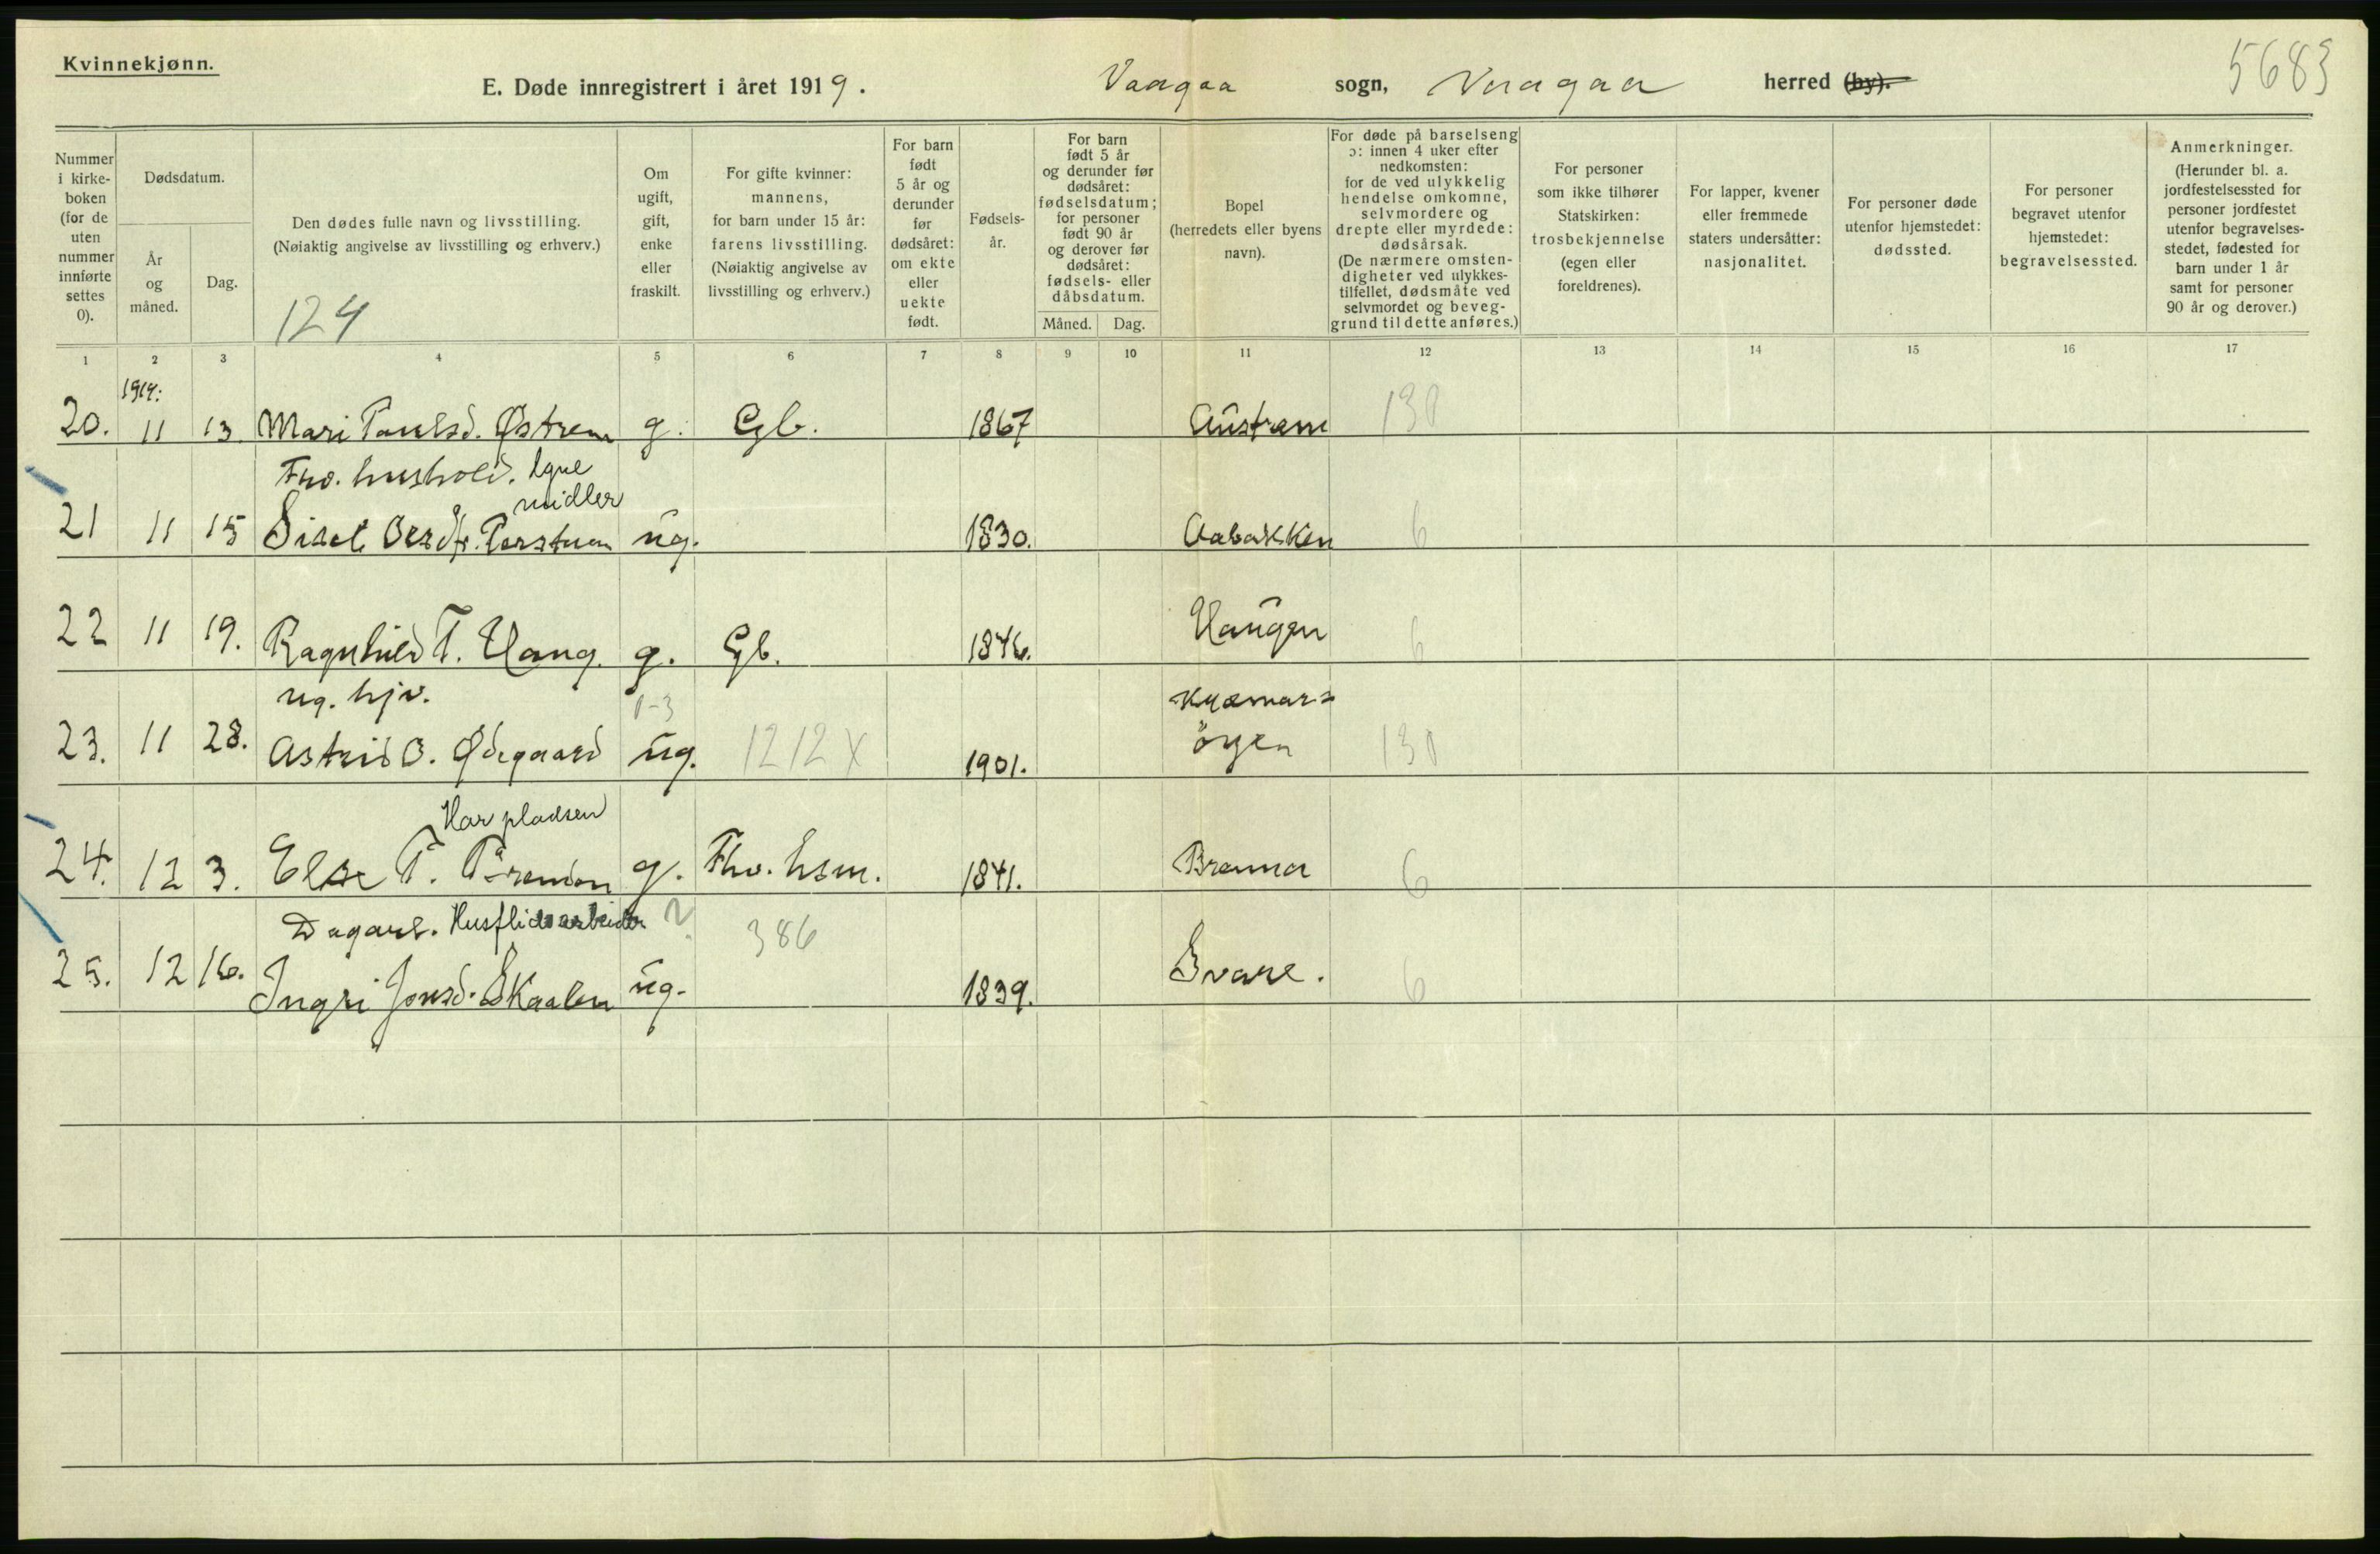 Kvinnekjønn.
E. Døde innregistrert i året 1919. Vaagaa sogn, Vaagaa herred (by).
5683
Nummer i kirke-boken (for de uten nummer innførte settes 0).
Dødsdatum.
År og måned.
Dag.
Den dødes fulle navn og livsstilling.
(Nøiaktig angivelse av livsstilling og erhverv.)
124
Om ugift, gift, enke eller fraskilt.
For gifte kvinner: mannens, for barn under 15 år: farens livsstilling. (Nøiaktig angivelse av livsstilling og erhverv.)
For barn født 5 år og derunder før dødsåret: om ekte eller uekte født.
Fødsels-år.
For barn født 5 år og derunder før dødsåret: fødselsdatum; for personer født 90 år og derover før dødsåret: fødsels- eller dåbsdatum.
Måned. Dag.
Bopel (herredets eller byens navn).
For døde på barselseng ɔ: innen 4 uker efter nedkomsten: for de ved ulykkelig hendelse omkomne, selvmordere og drepte eller myrdede: dødsårsak. (De nærmere omsten-digheter ved ulykkes-tilfellet, dødsmåte ved selvmordet og beveg-grund til dette anføres.)
For personer som ikke tilhører Statskirken: trosbekjennelse (egen eller foreldrenes).
For lapper, kvener eller fremmede staters undersåtter: nasjonalitet.
For personer døde utenfor hjemstedet: dødssted.
For personer begravet utenfor hjemstedet: begravelsessted.
Anmerkninger. (Herunder bl. a. jordfestelsessted for personer jordfestet utenfor begravelses-stedet, fødested for barn under 1 år samt for personer 90 år og derover.)
1 2 3 4 5 6 7 8 9 10 11 12 13 14 15 16 17
1919:
20. 11 13. Mari Paulsd. Østrem g. Gb. 1867 Austrem 130
Fhv. hushold. Egne midler
21 11 15 Sisel ug. 1830. Aabakken 6
22 11 19. Ragnhild T. Haug. g. Gb. 1846. Haugen 6
ug. hjv. 0-3
23. 11 28. Astrid O. Ødegaard ug. 1212 X 1901. øyen 130
Har pladsen
24. 12 3. Else T. g. Fhv. hsm. 1841. Brenna 6
Dagarb. Husflidsarbeider ? 386
25. 12 16. Ingri Jonsd. Skaalen ug. 1839. Svare. 6